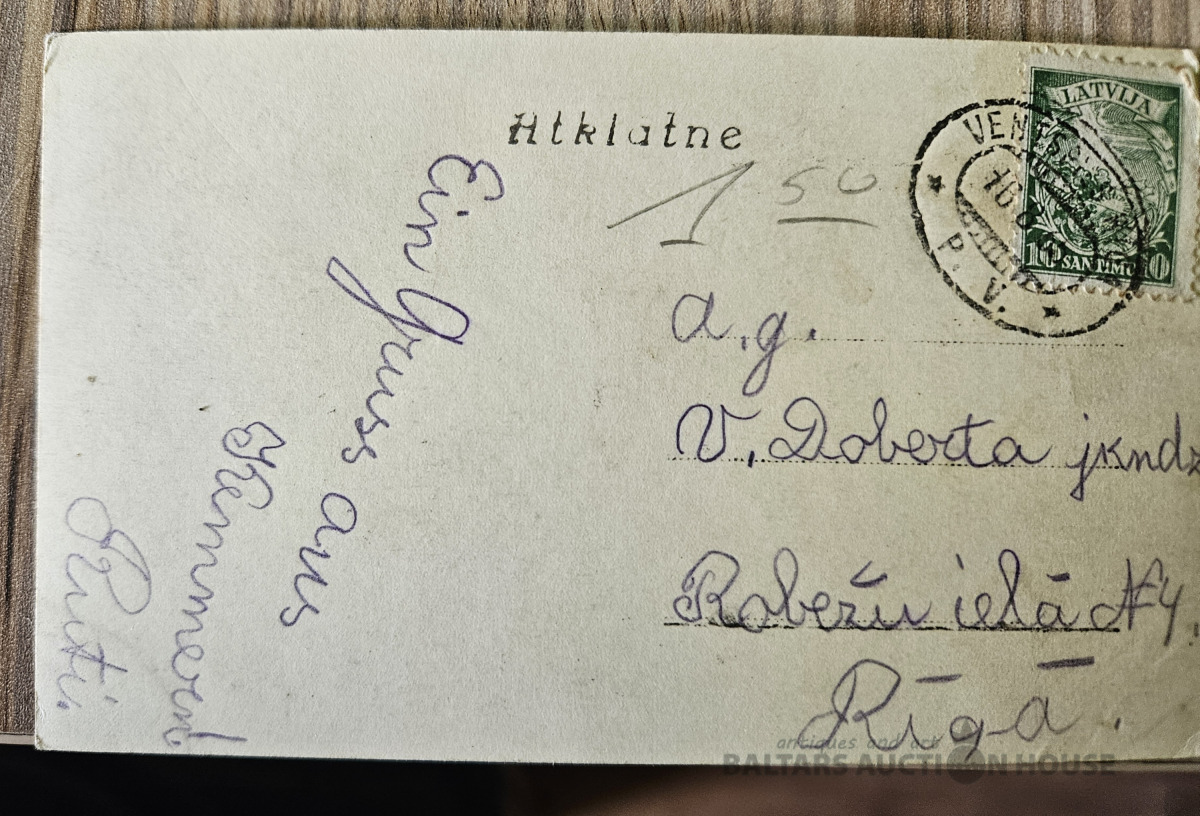 Atklatne
1 50
LATVIJA
10 SANTIMU 10
VENTSPILS
P. V.
Ein Gruss aus
Kemmern!
Ruti.
A.g.
V. Doberta jkndz
Robežu ielā № 4,
Rīgā.
antiques and art
BALTARS AUCTION HOUSE